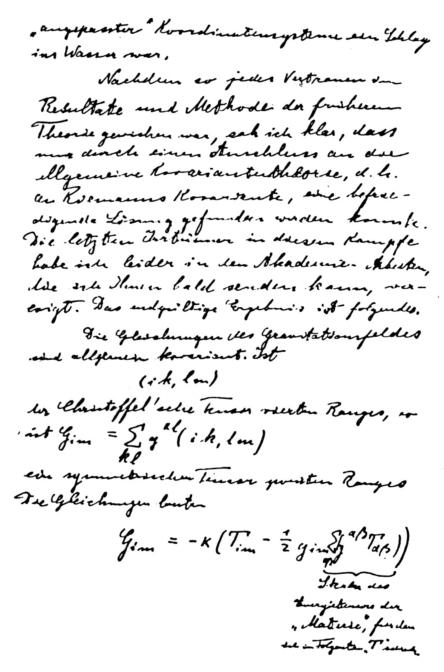 „angepasster" Koordinatensysteme ein Schlag
ins Wasser war.
Nachdem so jedes Vertrauen in
Resultate und Methode der früheren
Theorie gewichen war, sah ich klar, dass
nur durch einen Anschluss an die
allgemeine Kovariantentheorie, d. h.
an Riemanns Kovariante, eine befrie-
digende Lösung gefunden werden konnte.
Die letzten Irrtümer in diesem Kampfe
habe ich leider in den Akademie-Arbeiten,
die ich Ihnen bald senden kann, ver-
ewigt. Das endgültige Ergebnis ist folgendes.
Die Gleichungen des Gravitationsfeldes
sind allgemein kovariant. Ist
(ik, lm)
der Christoffel'sche Tensor vierten Ranges, so
ist G_{im} = \sum_{kl} g^{kl} (ik, lm)
ein symmetrischer Tensor zweiten Ranges
Die Gleichungen lauten
G_{im} = -κ (T_{im} - \frac{1}{2} g_{im} \sum_{αβ} g^{αβ} T_{αβ})
Skalar des
Energietensors der
„Materie", für den
ich im Folgenden „T"